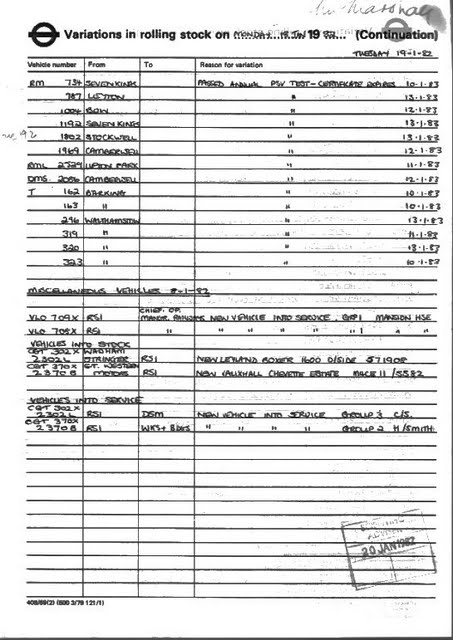 Variations in rolling stock on MONDAY 18 JAN 19 82 (Continuation)
TUESDAY 19-1-82
Vehicle number From To Reason for variation
RM 734 SEVEN KINGS PASSED ANNUAL PSV TEST - CERTIFICATE EXPIRES 10-1-83
787 LEYTON " 13-1-83
1004 BOW " 12-1-83
1192 SEVEN KINGS " 13-1-83
1802 STOCKWELL " 13-1-83
1969 CAMBERWELL " 12-1-83
RML 2724 UPTON PARK " 11-1-83
DMS 2056 CAMBERWELL " 12-1-83
T 162 BARKING " 10-1-83
163 " " 10-1-83
296 WALTHAMSTOW " 13-1-83
319 " " 11-1-83
320 " " 13-1-83
323 " " 10-1-83
MISCELLANEOUS VEHICLES -1-82
CHIEF. OP.
VLO 709X RSI NEW VEHICLE INTO SERVICE GRP1 MANSION HSE
VLO 708X RSI " " " " " " "
VEHICLES INTO STOCK
CGT 302X WADHAM
2302L STRINGER RSI NEW LEYLAND BOXER 1600 D/SIDE 571908
CGT 370X GT. WESTERN
2370B MOTORS RSI NEW VAUXHALL CHEVETTE ESTATE
VEHICLES INTO SERVICE
CGT 302X
2302L RSI DSM NEW VEHICLE INTO SERVICE GROUP 3 C/S.
CGT 370X
2370B RSI WKS + BDGS " " " " GROUP 2 H/SMITH
20 JAN 1982